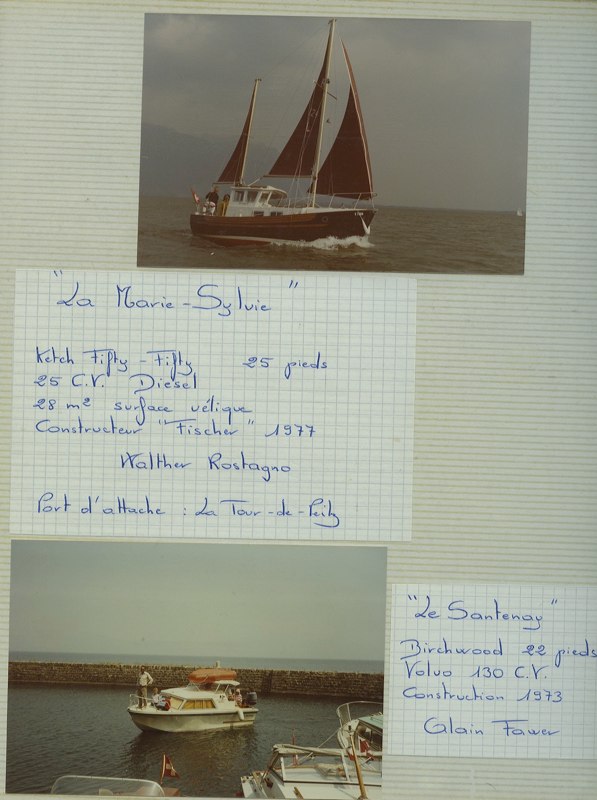 "La Marie-Sylvie"
Ketch Fifty-Fifty 25 pieds
25 C.V. Diesel
28 m² surface vélique
Constructeur "Fischer" 1977
Walther Rostagno
Port d'attache : La Tour-de-Peilz
"Le Santenay"
Birchwood 22 pieds
Volvo 130 C.V.
Construction 1973
Alain Fawer